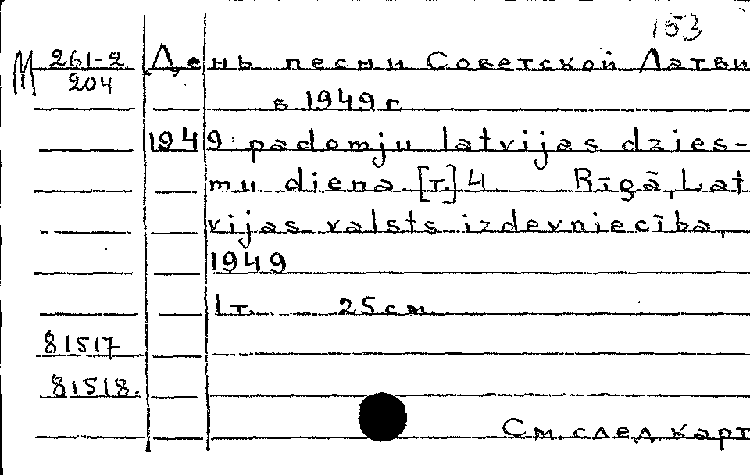 153
М 261-2 День песни Советской Латви
204
в 1949 г
1949 padomju latvijas dzies-
mu diena [т.] 4 Rīgā, Lat
vijas valsts izdevniecība,
1949
1 т. 25 см
81517
81518.
См. след. карт